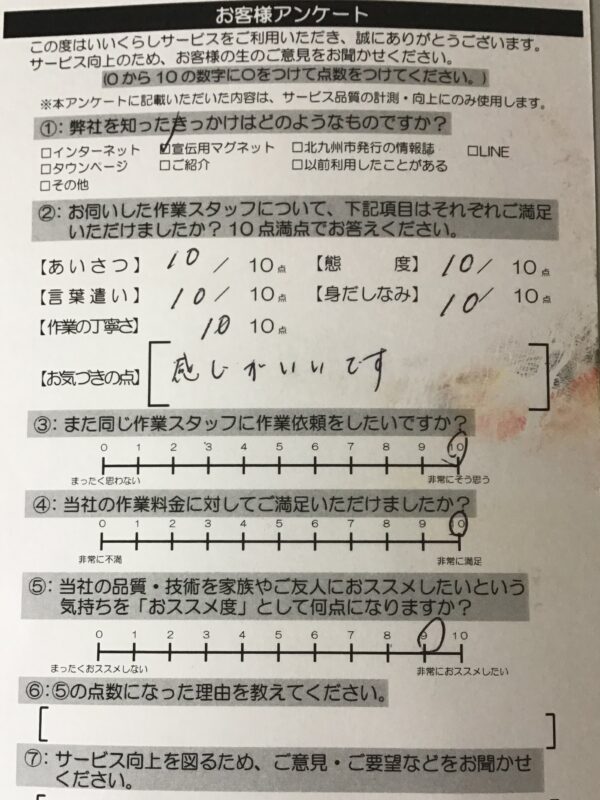 お客様アンケート
この度はいいくらしサービスをご利用いただき、誠にありがとうございます。
サービス向上のため、お客様の生のご意見をお聞かせください。
(0から10の数字に○をつけて点数をつけてください。)
※本アンケートに記載いただいた内容は、サービス品質の計測・向上にのみ使用します。
①：弊社を知ったきっかけはどのようなものですか？
□インターネット ☑宣伝用マグネット □北九州市発行の情報誌 □LINE
□タウンページ □ご紹介 □以前利用したことがある
□その他
②：お伺いした作業スタッフについて、下記項目はそれぞれご満足
いただけましたか？10点満点でお答えください。
【あいさつ】 10 / 10点 【態 度】 10 / 10点
【言葉遣い】 10 / 10点 【身だしなみ】 10 / 10点
【作業の丁寧さ】 10 10点
【お気づきの点】 感じがいいです
③：また同じ作業スタッフに作業依頼をしたいですか？
0 1 2 3 4 5 6 7 8 9 10
まったく思わない 非常にそう思う
④：当社の作業料金に対してご満足いただけましたか？
0 1 2 3 4 5 6 7 8 9 10
非常に不満 非常に満足
⑤：当社の品質・技術を家族やご友人におススメしたいという
気持ちを「おススメ度」として何点になりますか？
0 1 2 3 4 5 6 7 8 9 10
まったくおススメしない 非常におススメしたい
⑥：⑤の点数になった理由を教えてください。
⑦：サービス向上を図るため、ご意見・ご要望などをお聞かせ
ください。